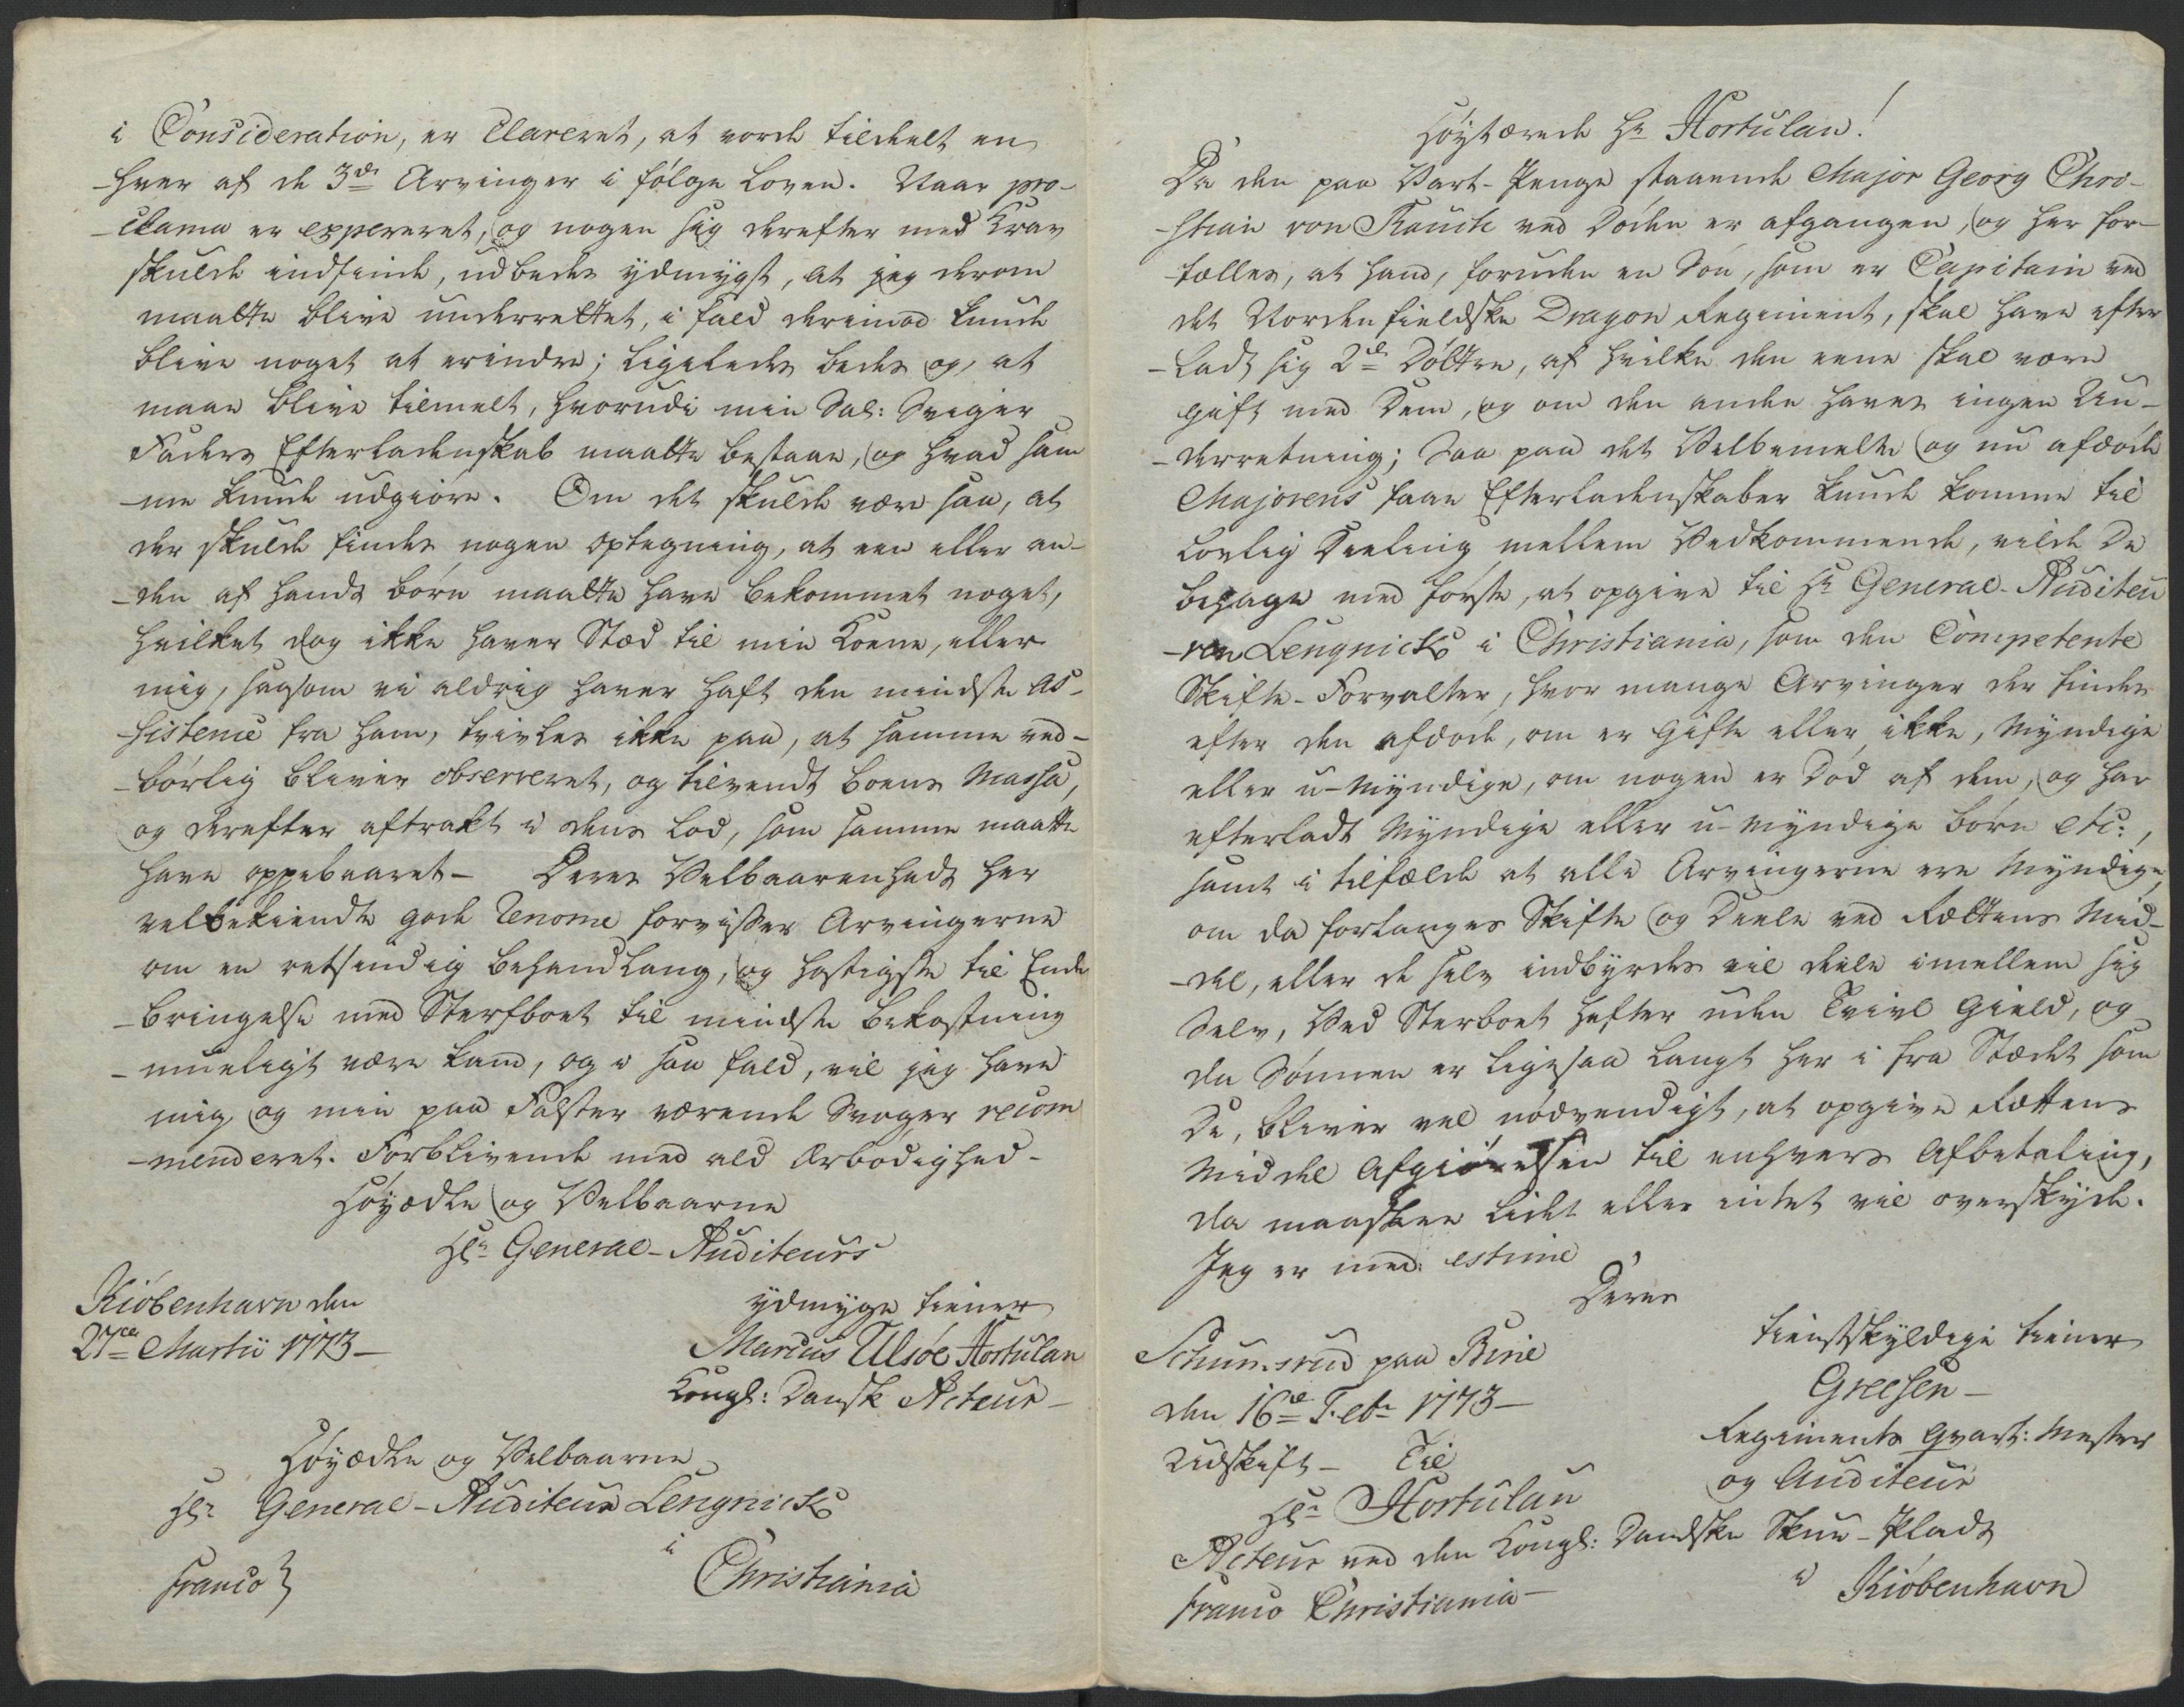 i Consideration, er Clareret, at vorde tildeelt en
-hver af de 3de Arvinger i følge Loven. Naar pro-
-clama er expereret, og nogen sig derefter med Krav
skulde indfinde, udbedes ydmygst, at jeg derom
maatte blive underrettet, i fald derimod kunde
blive noget at erindre; ligeledes bedes og, at
maae blive tilmelt, hvorudi min Sal: Sviger
Faders Efterladenskab maatte bestaae, og hvad sam
-me kunde udgiøre. Om det skulde være saa, at
der skulde findes nogen optegning, at een eller an-
-den af hands børn maatte have bekommet noget,
hvilket dog ikke haver Stæd til min Kone, eller
mig, saasom vi aldrig haver haft den mindste As-
-sistence fra ham, tvivles ikke paa, at samme ved-
-børlig bliver observeret, og tilvendt boens Massa,
og derefter aftrakt i dens Lod, som samme maatte
have oppebaaret- Deres Velbaarenheds her
velbekiendte gode Renome forvisser Arvingerne
om en retsindig behandlang, og hastigste til Ende
-bringelse med Sterfboet til mindste bekostning
-mueligt være kand, og i saa fald, vil jeg have
mig, og min paa Falster værende Svoger recom
-menderet. Forblivende med ald Ærbødighed-
Høyædle og Velbaarne
Hr General-Auditeurs
Kiøbenhavn den
27de Martii 1773-
ydmyge tiener
Marcus Ulsøe Hortulan
Kongl: Dansk Acteur-
Høyædle og Velbaarne
Hr General-Auditeur Lengnick
i
franco} Christiania
Høystærede Hr Hortulan!
Da den paa Vart-Penge staaende Major Georg Chri-
-stian von Rauch ved Døden er afgangen, og her for-
-tælles, at hand, foruden en Søn, som er Capitain ved
det Nordenfieldske Dragon Regiment, skal have efter
-ladt sig 2de Døttre, af hvilke den eene skal være
gift med Dem, og om den anden haves ingen Un-
-derretning; Saa paa det Velbemelte og nu afdøde
Majorens faae Efterladenskaber kunde komme til
Lovlig Deeling mellem Vedkommende, vilde De
behage med første, at opgive til Hr General-Auditeu
-ren Lengnick i Christiania, som den Competente
Skifte-Forvalter, hvor mange Arvinger der findes
efter den afdøde, om er Gifte eller ikke, Myndige
eller u-Myndige, om nogen er Død af dem, og har
efterladt Myndige eller u-Myndige børn etc:,
samt i tilfælde at alle Arvingerne ere Myndige,
om da forlanges Skifte og Deele ved Rættens Mid-
-del, eller de selv indbyrdes vil deele imellem sig
Selv, Ved Sterboet hefter uden Tvivl Gield, og
da Sønnen er ligesaa langt her i fra Stædet som
De, bliver vel nødvendigt, at opgive Rættens
Middel Afgiørelsen til enhvers Afbetaling,
da maaskee lidet eller intet vil overskyde.
Jeg er med estime
Deres
tienstskyldige tiener
Schumsrud paa Rine
den 16de Febr 1773-
Greesen-
Regiments Qvart: Mester
og Auditeur
Udskift- Til
Hr Hortulan
Acteur ved den Kongl: Dandske Skue-Plads
i Kiøbenhavn
franco Christiania-